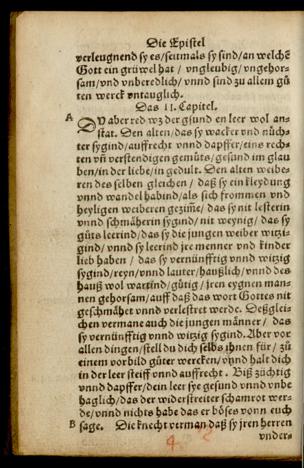 Die Epistel
verleugnend sy es/seitmals sy sind/an welchē
Gott ein grüwel hat / vngleubig/vngehor-
sam/vnd vnberedlich/ vnnd sind zu allem gů
ten werck vntauglich.
Das II. Capitel.
A
Du aber red wz der gsund en leer wol an-
stat. Den alten/das sy wacker vnd nüch-
ter sygind/auffrecht vnnd dapffer/eins rech-
ten vñ verstendigen gemüts/gesund im glau
ben/in der liebe/in gedult. Den alten weibe-
ren des selben gleichen / daß sy ein kleydung
vnnd wandel habind/als sich frommen vnd
heyligen weiberen gezim̄e/ das sy nit lesterin
vnd schmäherin sygind/ nit weynig/ das sy
gůts leerind/das sy die jungen weiber witzi-
gind/vnnd sy leerind jre menner vnd kinder
lieb haben / das sy vernünfftig vnnd witzig
sygind/reyn/vnnd lauter/haußlich/vnnd des
hauß wol wartind/gůtig / jren eygnen man-
nen gehorsam/auff daß das wort Gottes nit
geschmähet vnnd verlestret werde. Deßglei-
chen vermane auch die jungen männer / das
sy vernünfftig vnnd witzig sygind. Aber vor
allen dingen/stell du dich selbs jhnen für/ zů
einem vorbild gůter wercken/ vnnd halt dich
in der leer steiff vnnd auffrecht. Biß züchtig
vnnd dapffer/dein leer sye gesund vnnd vnbe
haglich/das der widerstreiter schamrot wer-
de/vnnd nichts habe das er böses vonn euch
B sage. Die knecht verman daß sy jren herren
vnder-